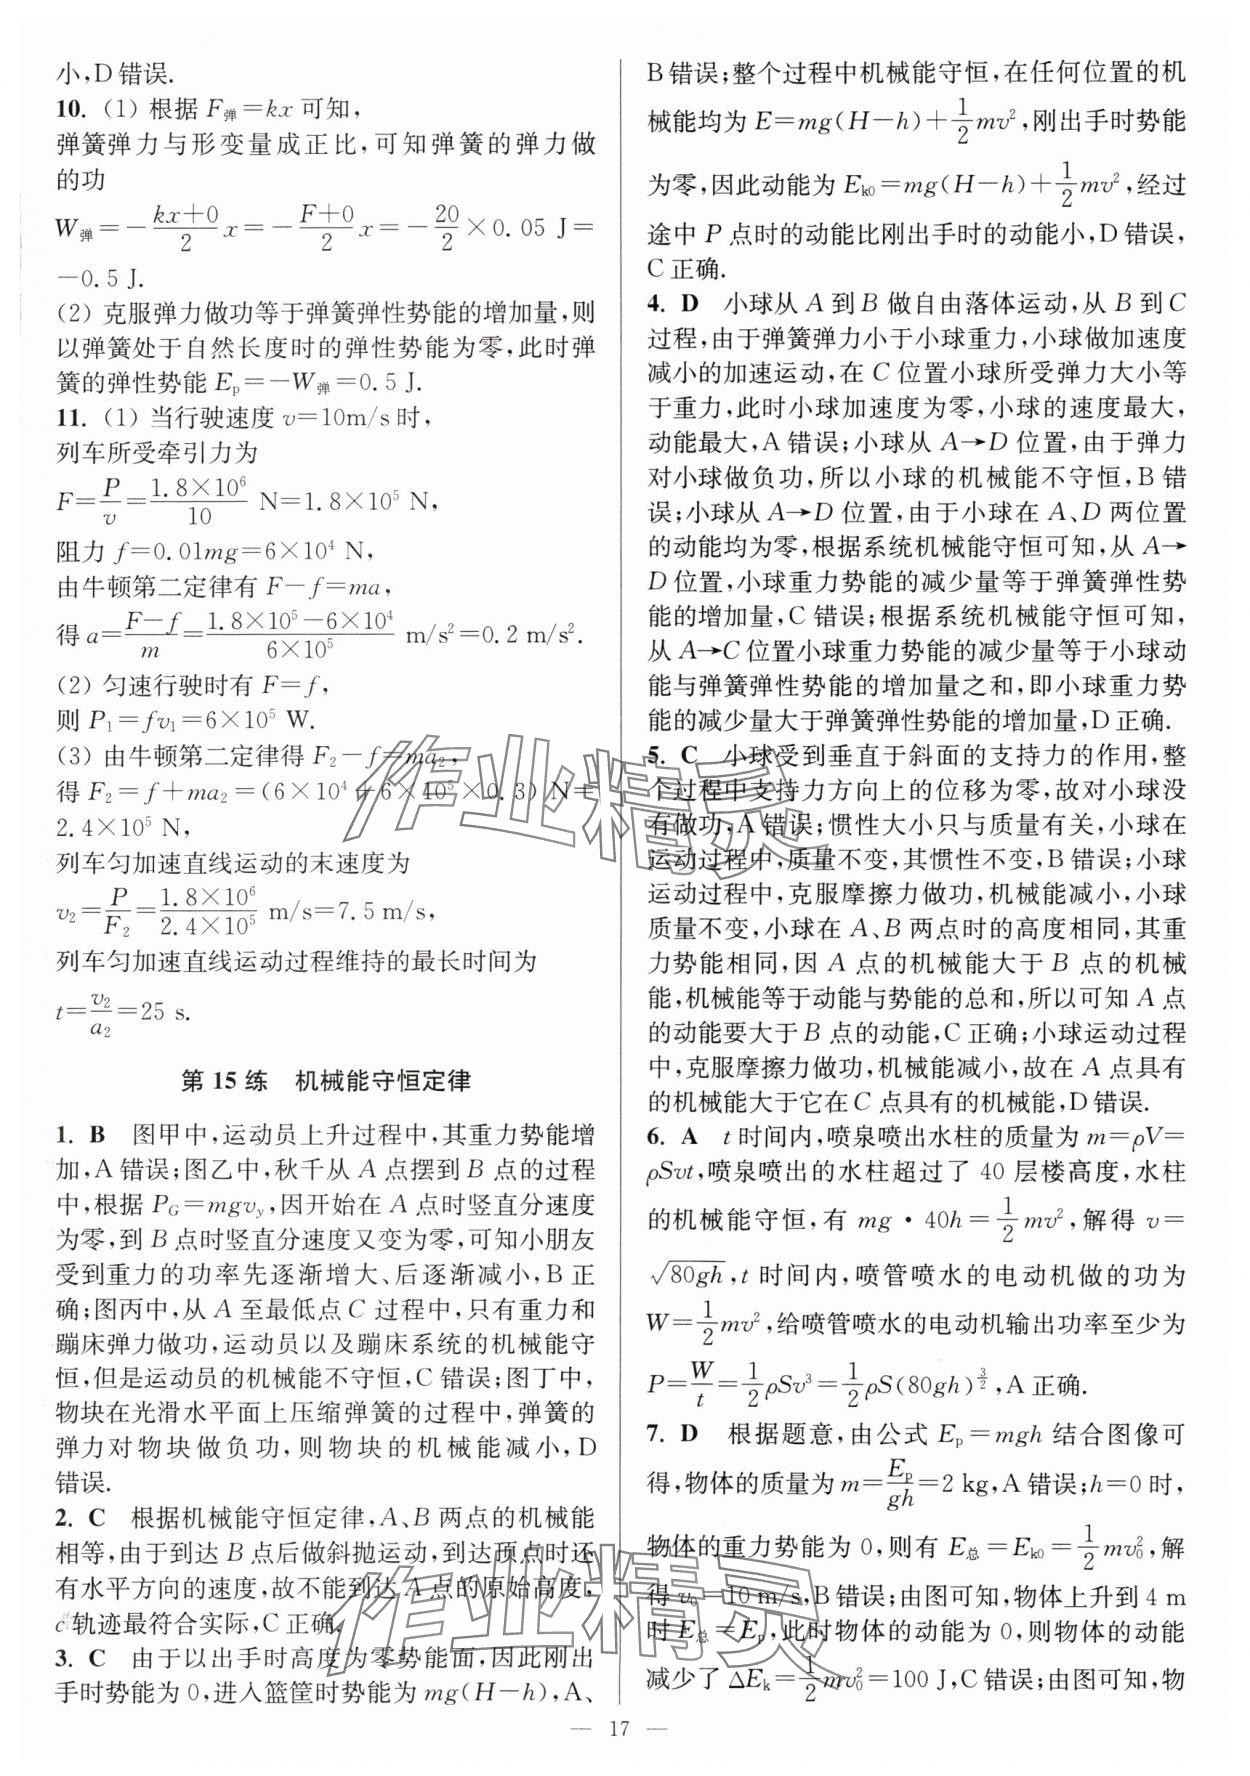 小,D错误.
10. (1) 根据 F弹=kx 可知,
弹簧弹力与形变量成正比,可知弹簧的弹力做
的功
W弹=-(kx+0)/2 x=-(F+0)/2 x=-20/2×0.05 J=
-0.5 J.
(2) 克服弹力做功等于弹簧弹性势能的增加量,则
以弹簧处于自然长度时的弹性势能为零,此时弹
簧的弹性势能 Eₚ=-W弹=0.5 J.
11. (1) 当行驶速度 v=10m/s时,
列车所受牵引力为
F=P/v=1.8×10⁶/10 N=1.8×10⁵ N,
阻力 f=0.01mg=6×10⁴ N,
由牛顿第二定律有 F-f=ma,
得 a=(F-f)/m=(1.8×10⁵-6×10⁴)/(6×10⁵) m/s²=0.2 m/s².
(2) 匀速行驶时有 F=f,
则 P₁=fv₁=6×10⁵ W.
(3) 由牛顿第二定律得 F₂-f=ma₂,
得 F₂=f+ma₂=(6×10⁴+6×10⁵×0.3) N=
2.4×10⁵ N,
列车匀加速直线运动的末速度为
v₂=P/F₂=1.8×10⁶/2.4×10⁵ m/s=7.5 m/s,
列车匀加速直线运动过程维持的最长时间为
t=v₂/a₂=25 s.
第 15 练 机械能守恒定律
1. B 图甲中,运动员上升过程中,其重力势能增
加,A错误;图乙中,秋千从 A 点摆到 B 点的过程
中,根据 P_G=mgv_y,因开始在 A 点时竖直分速度
为零,到 B 点时竖直分速度又变为零,可知小朋友
受到重力的功率先逐渐增大、后逐渐减小,B 正
确;图丙中,从 A 至最低点 C 过程中,只有重力和
蹦床弹力做功,运动员以及蹦床系统的机械能守
恒,但是运动员的机械能不守恒,C错误;图丁中,
物块在光滑水平面上压缩弹簧的过程中,弹簧的
弹力对物块做负功,则物块的机械能减小,D
错误.
2. C 根据机械能守恒定律,A、B 两点的机械能
相等,由于到达 B 点后做斜抛运动,到达顶点时还
有水平方向的速度,故不能到达 A 点的原始高度,
c 轨迹最符合实际,C正确.
3. C 由于以出手时高度为零势能面,因此刚出
手时势能为 0,进入篮筐时势能为 mg(H-h),A、
B错误;整个过程中机械能守恒,在任何位置的机
械能均为 E=mg(H-h)+1/2 mv²,刚出手时势能
为零,因此动能为 Eₖ₀=mg(H-h)+1/2 mv²,经过
途中 P 点时的动能比刚出手时的动能小,D错误,
C正确.
4. D 小球从 A 到 B 做自由落体运动,从 B 到 C
过程,由于弹簧弹力小于小球重力,小球做加速度
减小的加速运动,在 C 位置小球所受弹力大小等
于重力,此时小球加速度为零,小球的速度最大,
动能最大,A错误;小球从 A→D 位置,由于弹力
对小球做负功,所以小球的机械能不守恒,B 错
误;小球从 A→D 位置,由于小球在 A、D 两位置
的动能均为零,根据系统机械能守恒可知,从 A→
D 位置,小球重力势能的减少量等于弹簧弹性势
能的增加量,C错误;根据系统机械能守恒可知,
从 A→C 位置小球重力势能的减少量等于小球动
能与弹簧弹性势能的增加量之和,即小球重力势
能的减少量大于弹簧弹性势能的增加量,D正确.
5. C 小球受到垂直于斜面的支持力的作用,整
个过程中支持力方向上的位移为零,故对小球没
有做功,A错误;惯性大小只与质量有关,小球在
运动过程中,质量不变,其惯性不变,B错误;小球
运动过程中,克服摩擦力做功,机械能减小,小球
质量不变,小球在 A、B 两点时的高度相同,其重
力势能相同,因 A 点的机械能大于 B 点的机械
能,机械能等于动能与势能的总和,所以可知 A 点
的动能要大于 B 点的动能,C正确;小球运动过程
中,克服摩擦力做功,机械能减小,故在 A 点具有
的机械能大于它在 C 点具有的机械能,D错误.
6. A t 时间内,喷泉喷出水柱的质量为 m=ρV=
ρSvt,喷泉喷出的水柱超过了 40 层楼高度,水柱
的机械能守恒,有 mg·40h=1/2 mv²,解得 v=
√(80gh),t 时间内,喷管喷水的电动机做的功为
W=1/2 mv²,给喷管喷水的电动机输出功率至少为
P=W/t=1/2 ρSv³=1/2 ρS(80gh)^(3/2),A正确.
7. D 根据题意,由公式 Eₚ=mgh 结合图像可
得,物体的质量为 m=Eₚ/gh=2 kg,A错误;h=0时,
物体的重力势能为 0,则有 E总=Eₖ₀=1/2 mv₀²,解
得 v₀=10 m/s,B错误;由图可知,物体上升到 4 m
时 E总=Eₚ,此时物体的动能为 0,则物体的动能
减少了 ΔEₖ=1/2 mv₀²=100 J,C错误;由图可知,物
— 17 —
作业精灵
作业精灵